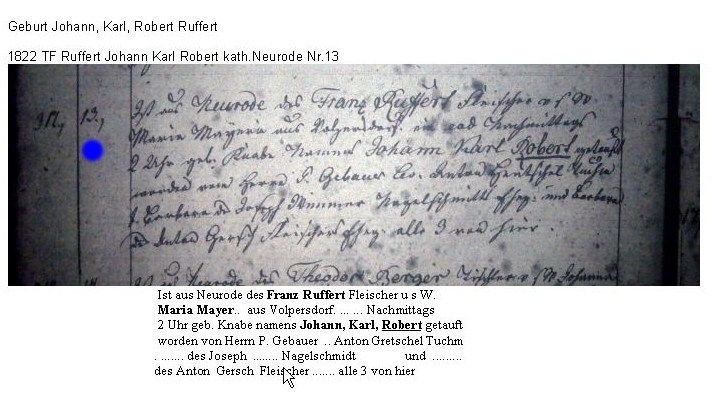 Geburt Johann, Karl, Robert Ruffert
1822 TF Ruffert Johann Karl Robert kath.Neurode Nr.13
13,
Ist aus Neurode des Franz Ruffert Fleischer u s W
Maria Mayerin aus Volpersdorf. Nachmittags
2 Uhr geb. Knabe Namens Johann Karl Robert getauft
worden von Herrn P. Gebauer Anton
Barbara des Joseph Nagelschmitt und Barbara
des Anton Gersch Fleischers alle 3 von hier.
Ist aus Neurode des Theodor Berger Tischler u s W Johanna
Ist aus Neurode des Franz Ruffert Fleischer u s W.
Maria Mayer.. aus Volpersdorf. ... ... Nachmittags
2 Uhr geb. Knabe namens Johann, Karl, Robert getauft
worden von Herrn P. Gebauer .. Anton Gretschel Tuchm
. ....... des Joseph ........ Nagelschmidt und .........
des Anton Gersch Fleischer ....... alle 3 von hier